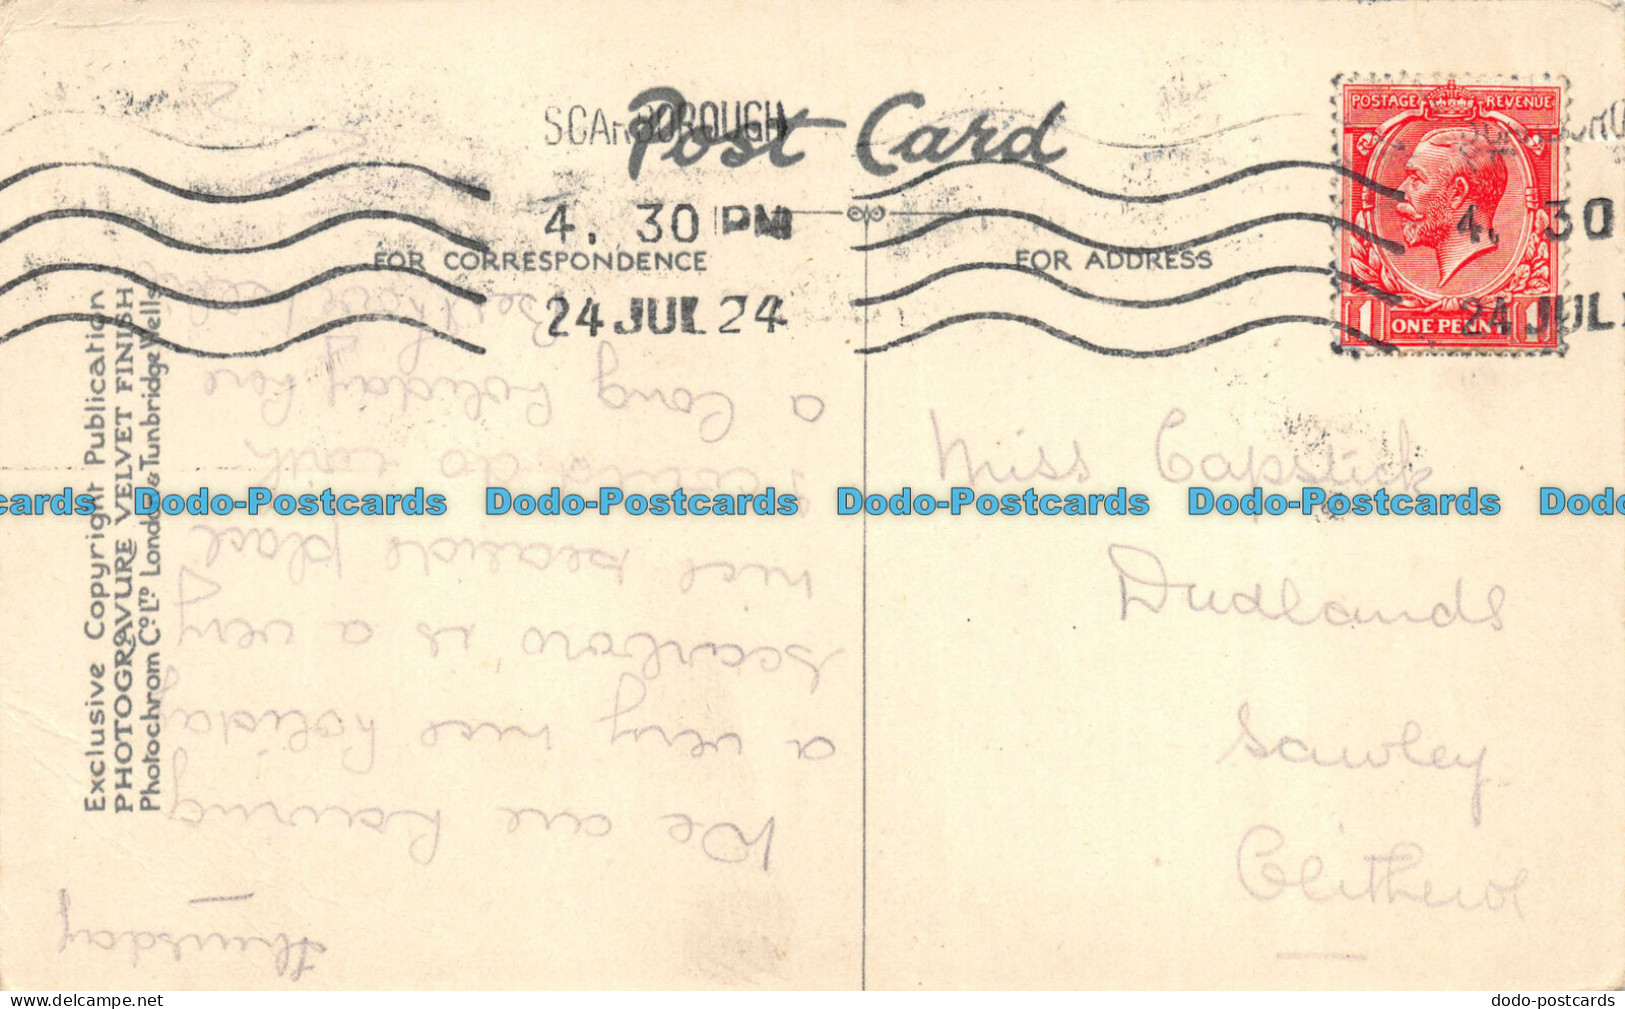 Post Card
SCARBOROUGH
4. 30 PM
24 JUL 24
FOR CORRESPONDENCE
FOR ADDRESS
POSTAGE REVENUE
1 ONE PENNY 1
4. 30
24 JUL
Exclusive Copyright Publication
PHOTOGRAVURE VELVET FINISH
Photochrom Co. LTD London & Tunbridge Wells
Thursday
We are having
a very nice holiday
Scarboro' is a very
nice seaside place
I could do with
a long holiday here
Miss Capstick
Dudlands
Sawley
Clitheroe
Dodo-Postcards Dodo-Postcards Dodo-Postcards Dodo-Postcards
dodo-postcards.com
dodo-postcards